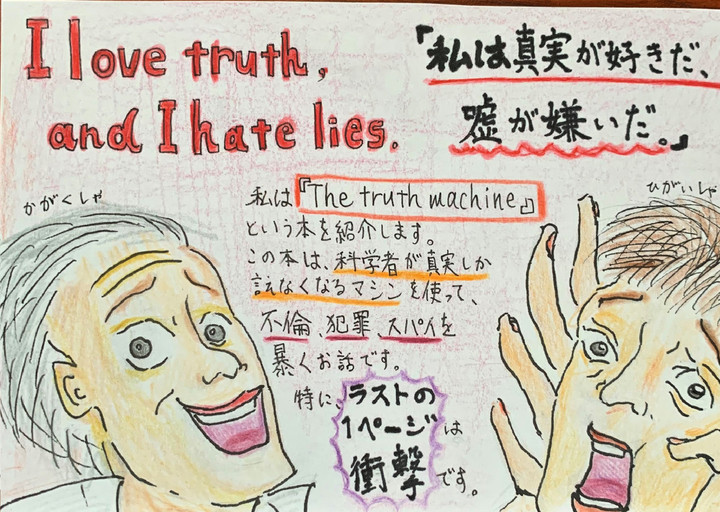 I love truth,
and I hate lies.
「私は真実が好きだ、
嘘が嫌いだ。」
かがくしゃ
ひがいしゃ
私は『The truth machine』
という本を紹介します。
この本は、科学者が真実しか
言えなくなるマシンを使って、
不倫、犯罪、スパイを
暴くお話です。
特に、ラストの
1ページは
衝撃です。